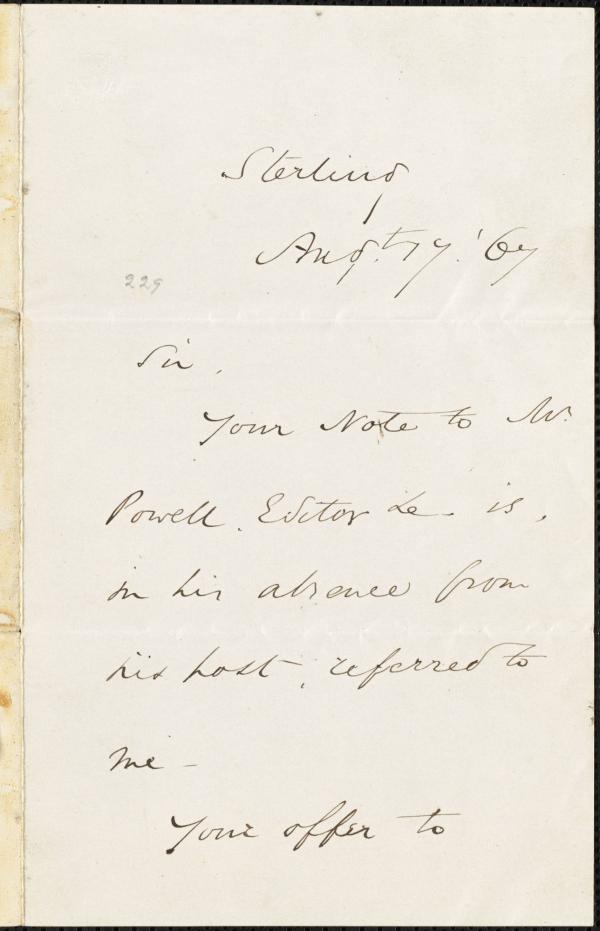 Sterling
Augt. 17. '67
229
Sir,
Your Note to Mr
Powell, Editor &c. is,
in his absence from
his post, referred to
me -
Your offer to